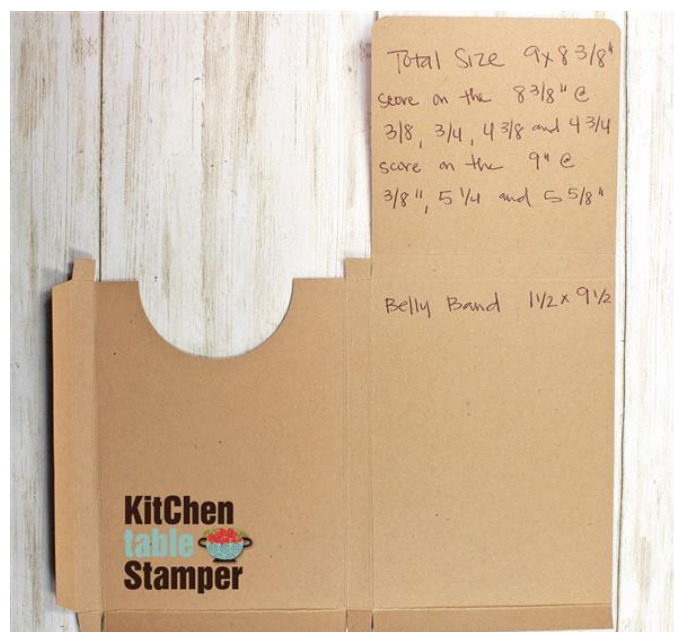 Total Size 9x8 3/8"
score on the 8 3/8" @
3/8, 3/4, 4 3/8 and 4 3/4
score on the 9" @
3/8", 5 1/4 and 5 5/8"
Belly Band 1 1/2 x 9 1/2
KitChen
table
Stamper